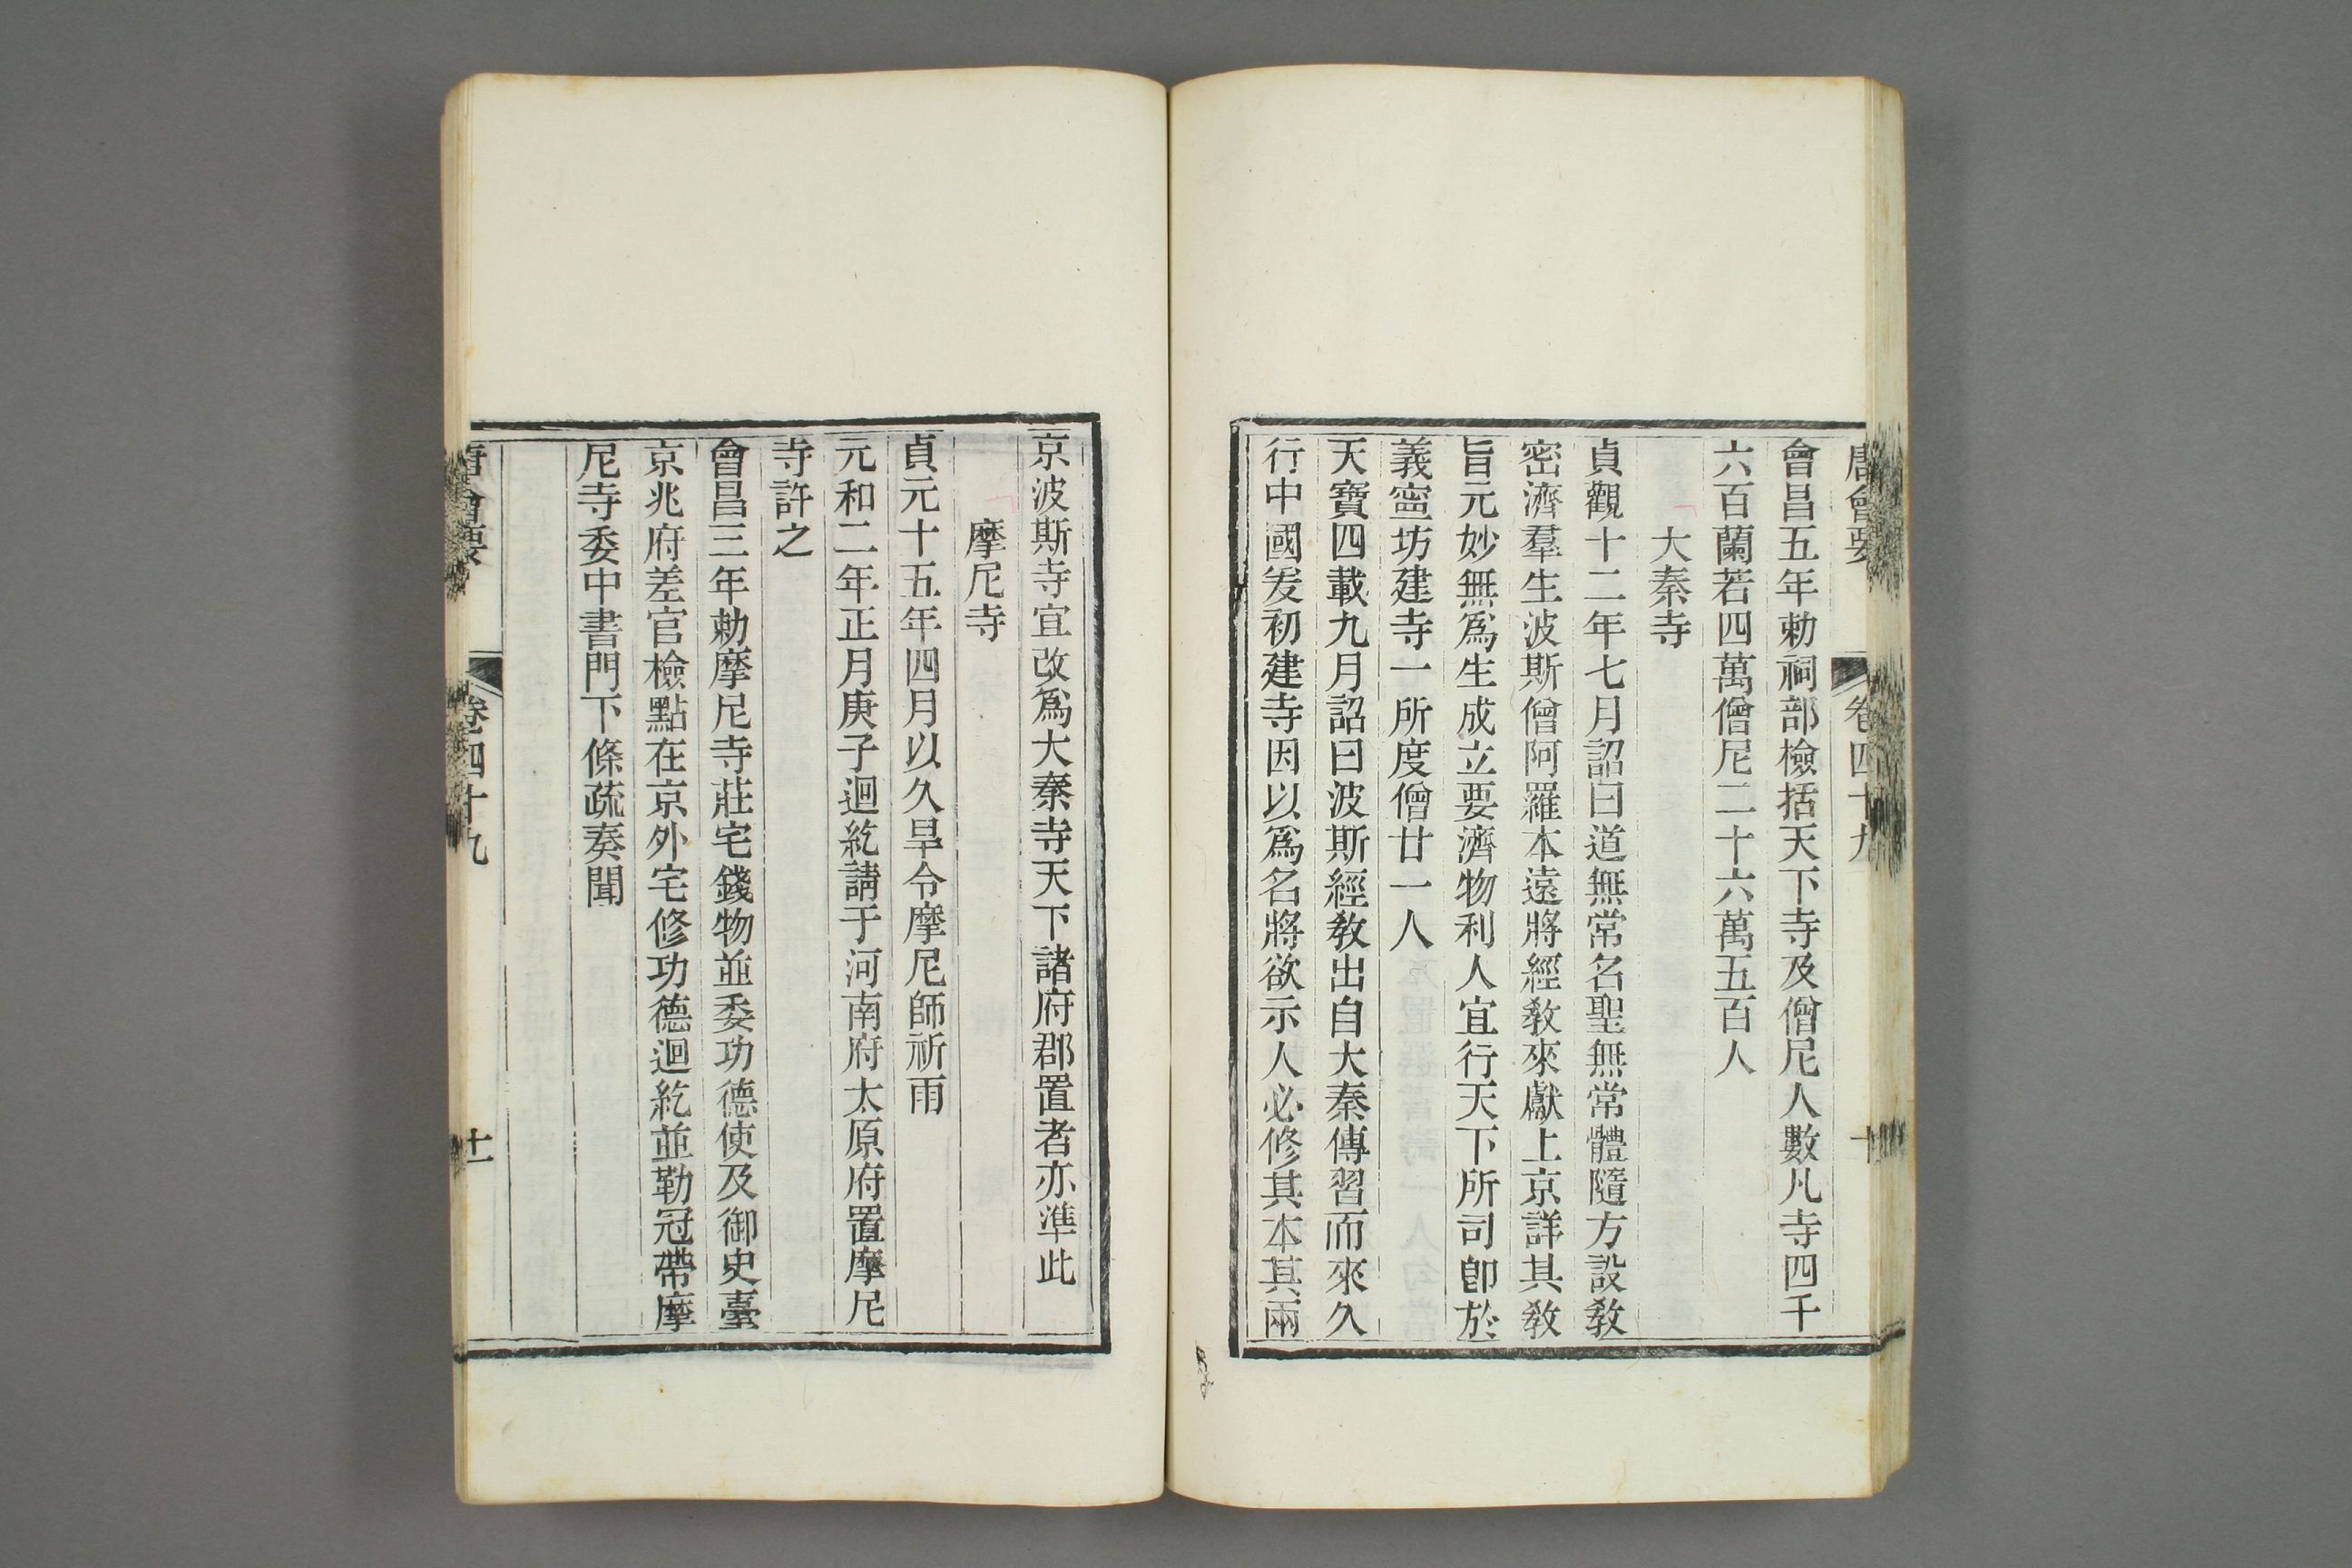 唐會要 卷四十九 十
會昌五年勅祠部檢括天下寺及僧尼人數凡寺四千
六百蘭若四萬僧尼二十六萬五百人
大秦寺
貞觀十二年七月詔曰道無常名聖無常體隨方設敎
密濟羣生波斯僧阿羅本遠將經敎來獻上京詳其敎
旨元妙無爲生成立要濟物利人宜行天下所司卽於
義寧坊建寺一所度僧廿一人
天寶四載九月詔曰波斯經敎出自大秦傳習而來久
行中國爰初建寺因以爲名將欲示人必修其本其兩
京波斯寺宜改爲大秦寺天下諸府郡置者亦準此
摩尼寺
貞元十五年四月以久旱令摩尼師祈雨
元和二年正月庚子迴紇請于河南府太原府置摩尼
寺許之
會昌三年勅摩尼寺莊宅錢物並委功德使及御史臺
京兆府差官檢點在京外宅修功德迴紇並勒冠帶摩
尼寺委中書門下條疏奏聞
唐會要 卷四十九 十一